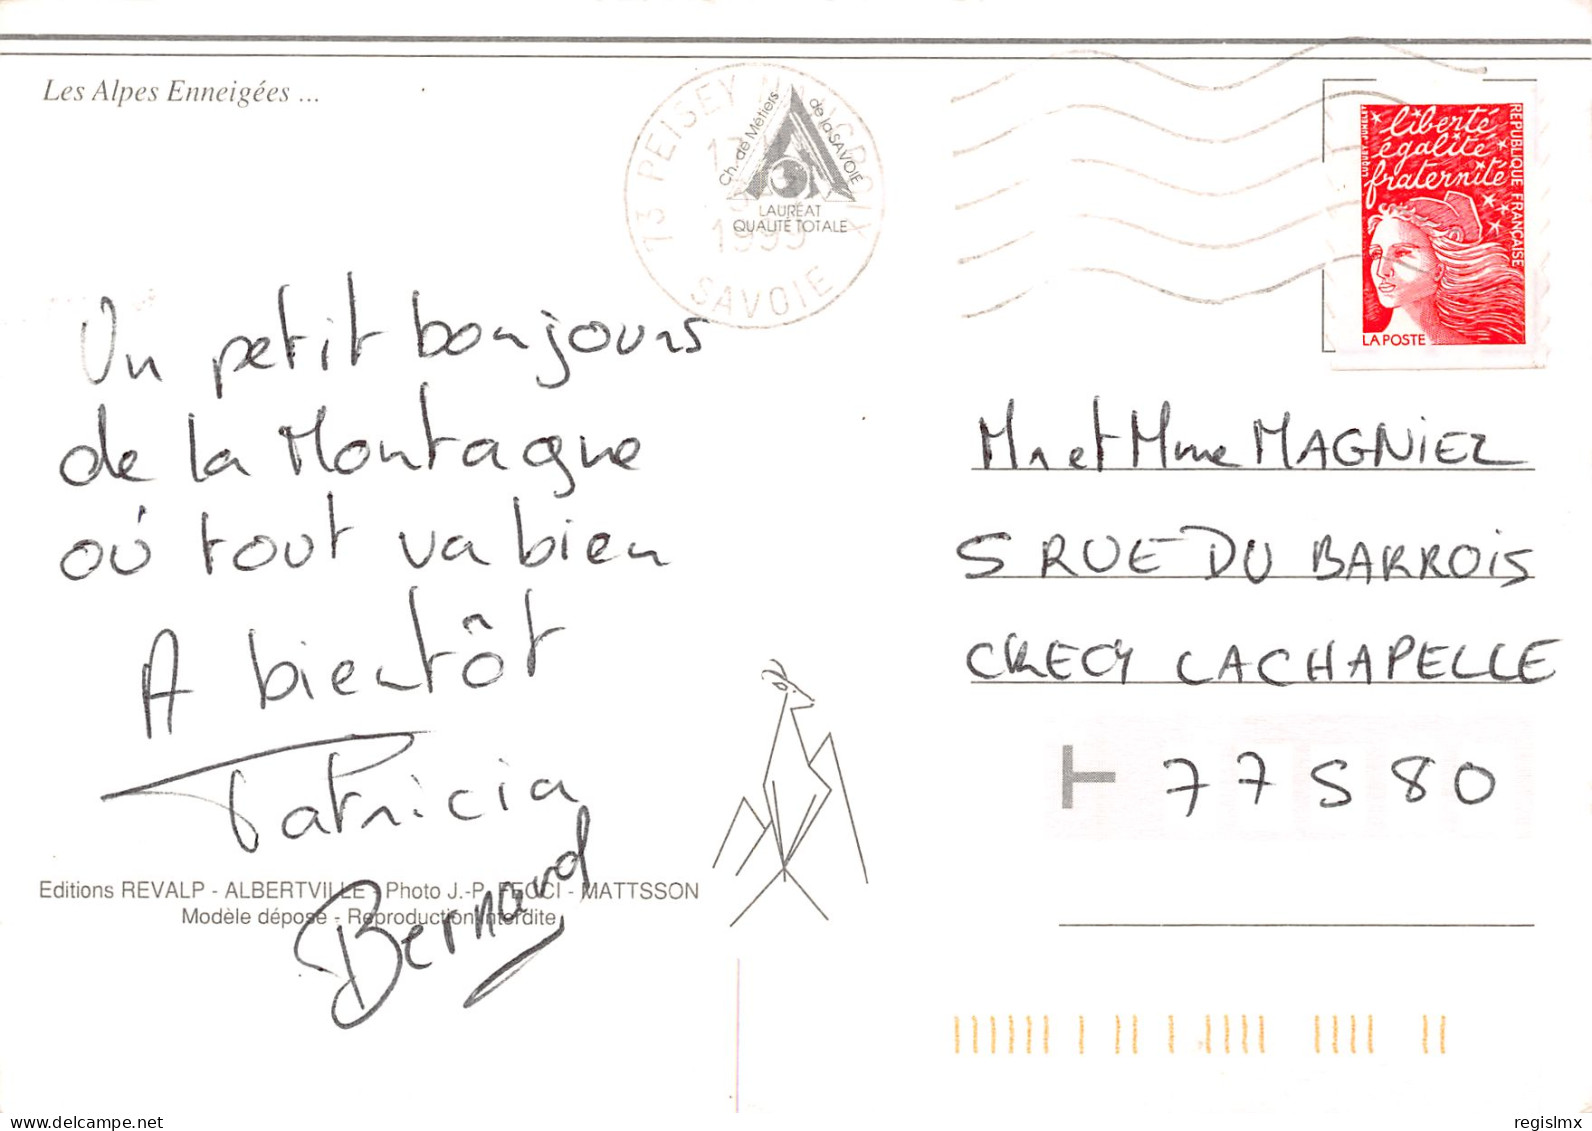 Les Alpes Enneigées ...
PEISEY
1999
SAVOIE
Ch. de Métiers
de la SAVOIE
LAURÉAT
QUALITÉ TOTALE
liberté
égalité
fraternité
RÉPUBLIQUE FRANÇAISE
LA POSTE
Un petit bonjours
de la Montagne
où tout va bien
A bientôt
Patricia
Bernard
Mr et Mme MAGNIEZ
5 RUE DU BARROIS
CRECY LACHAPELLE
77580
Editions REVALP - ALBERTVILLE - Photo J.-P. FECCI - MATTSSON
Modèle déposé - Reproduction interdite
delcampe.net
regislmx